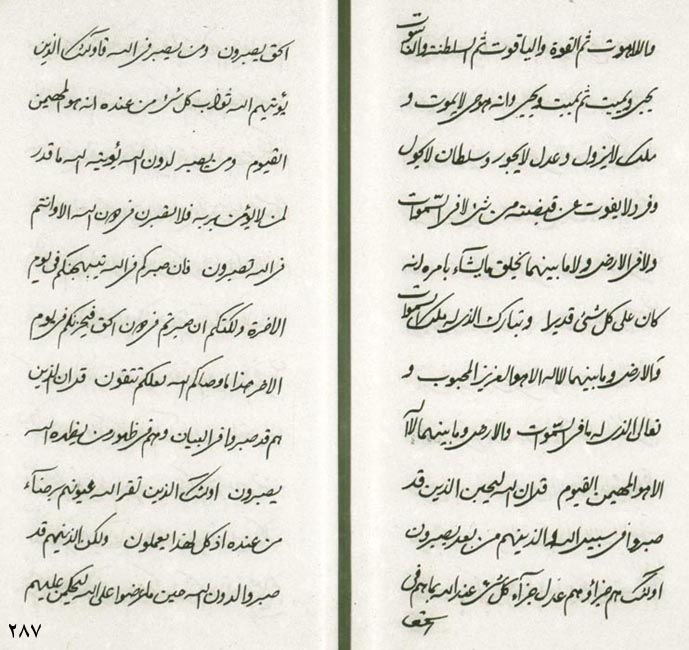 واللاهوت ثم القوة والياقوت ثم السلطنة والناسوت
يحيي ويميت ثم يميت ويحيي وانه هو حي لا يموت و
ملك لا يزول وعدل لا يجور وسلطان لا يحول
وفرد لا يفوت عن قبضته من شئ لا في السموات
ولا في الارض ولا ما بينهما يخلق ما يشآء بامره انه
كان على كل شئ قديرا وتبارك الذي له ملك السموات
والارض وما بينهما لا اله الا هو العزيز المحبوب و
تعالى الذي له ما في السموات والارض وما بينهما لا اله
الا هو المهيمن القيوم قل ان الله ليحبن الذين قد
صبروا في سبيل الله والذينهم من بعد يصبرون
اولئك هم جزاؤهم عدل جزآء كل شئ عند الله بما هم في
الحق
الحق يصبرون ومن يصبر في الله فاولئك الذين
يؤتيهم الله ثواب كل شئ من عنده انه هو المهيمن
القيوم ومن يصبر لدون الله يؤتيه الله ما قدر
لمن لا يؤمن بربه فلا تصبرن في دون الله الا وانتم
في الله تصبرون فان صبركم في الله ينجينكم في يوم
الاخرة ولكنكم ان صبرتم في دون الحق فيحزنكم في يوم
الاخر هذا ما وصاكم الله لعلكم تتقون قل ان الذين
هم قد صبروا في البيان وهم في ظهور من يظهره الله
يصبرون اولئك الذين تقر الله عيونهم برضآء
من عنده اذ كل لهذا يعملون ولكن الذينهم قد
صبروا لدون الله حين ما عرضوا على الله ليحكمن عليهم
٢٨٧